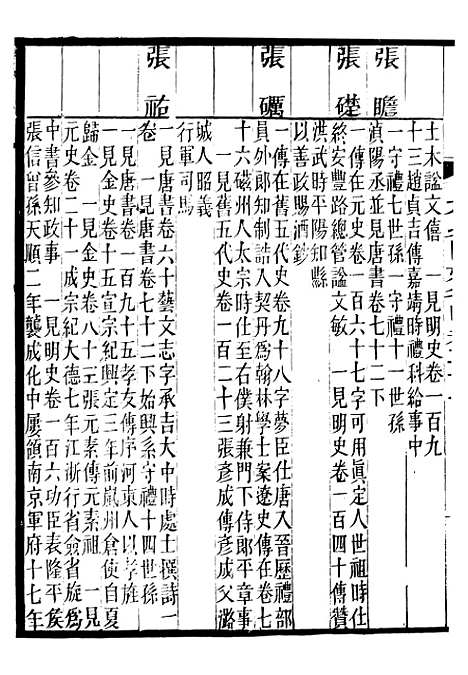 土木謚文僖　一見明史卷一百九
十三趙貞吉傳嘉靖時禮科給事中
張瞻
一守禮七世孫一守禮十一世孫
湞陽丞並見唐書卷七十二下
張礎
一傳在元史卷一百六十七字可用眞定人世祖時仕
終安豐路總管謚文敏　一見明史卷一百四十傳贊
洪武時平陽知縣
以善政賜酒鈔
張礪
一傳在舊五代史卷九十八字夢臣仕唐入晉歷禮部
員外郎知制誥入契丹爲翰林學士案遼史傳在卷七
十六磁州人太宗時仕至右僕射兼門下侍郎平章事
一見舊五代史卷一百二十三張彥成傳彥成父潞
城人昭義
行軍司馬
張祐
一見唐書卷六十藝文志字承吉大中時處士撰詩一
卷　一見唐書卷七十二下始興系守禮十四世孫
一見唐書卷一百九十五孝女傳序河東人以孝旌
一見金史卷十五宣宗紀興定三年前嵐州倉使自夏
歸金　一見金史卷八十三張元素傳元素祖　一見
元史卷二十一成宗紀大德七年江浙行省僉省旋爲
中書參知政事　一見明史卷一百六功臣表隆平侯
張信曾孫天順二年襲成化中屢領南京軍府十七年